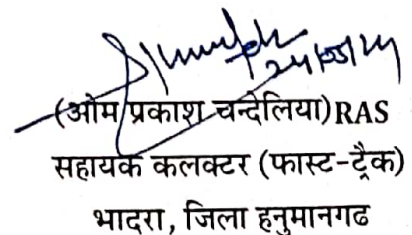 (ओम प्रकाश चन्देलिया)RAS
सहायक कलक्टर (फास्ट-ट्रैक)
भादरा, जिला हनुमानगढ